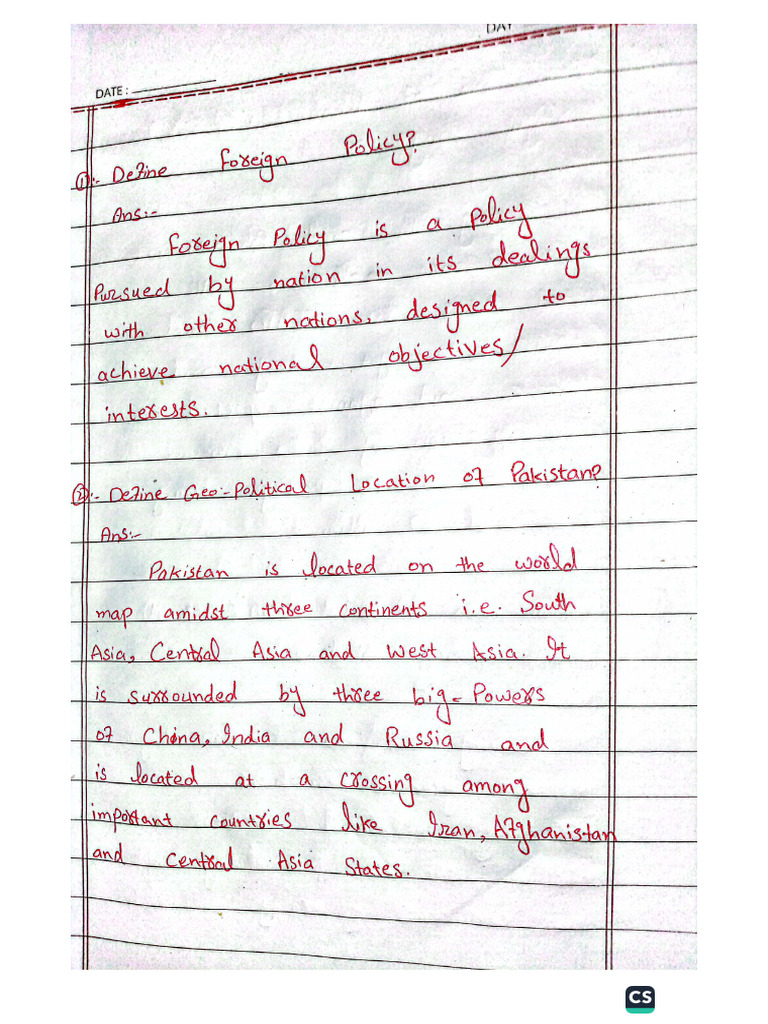 DAY
DATE:
①:- Define Foreign Policy?
Ans:-
Foreign Policy is a Policy
Pursued by nation in its dealings
with other nations, designed to
achieve national objectives/
interests.
②:- Define Geo-Political Location of Pakistan?
Ans:-
Pakistan is located on the world
map amidst three continents i.e. South
Asia, Central Asia and West Asia. It
is surrounded by three big-Powers
of China, India and Russia and
is located at a crossing among
important countries like Iran, Afghanistan
and Central Asia States.
CS